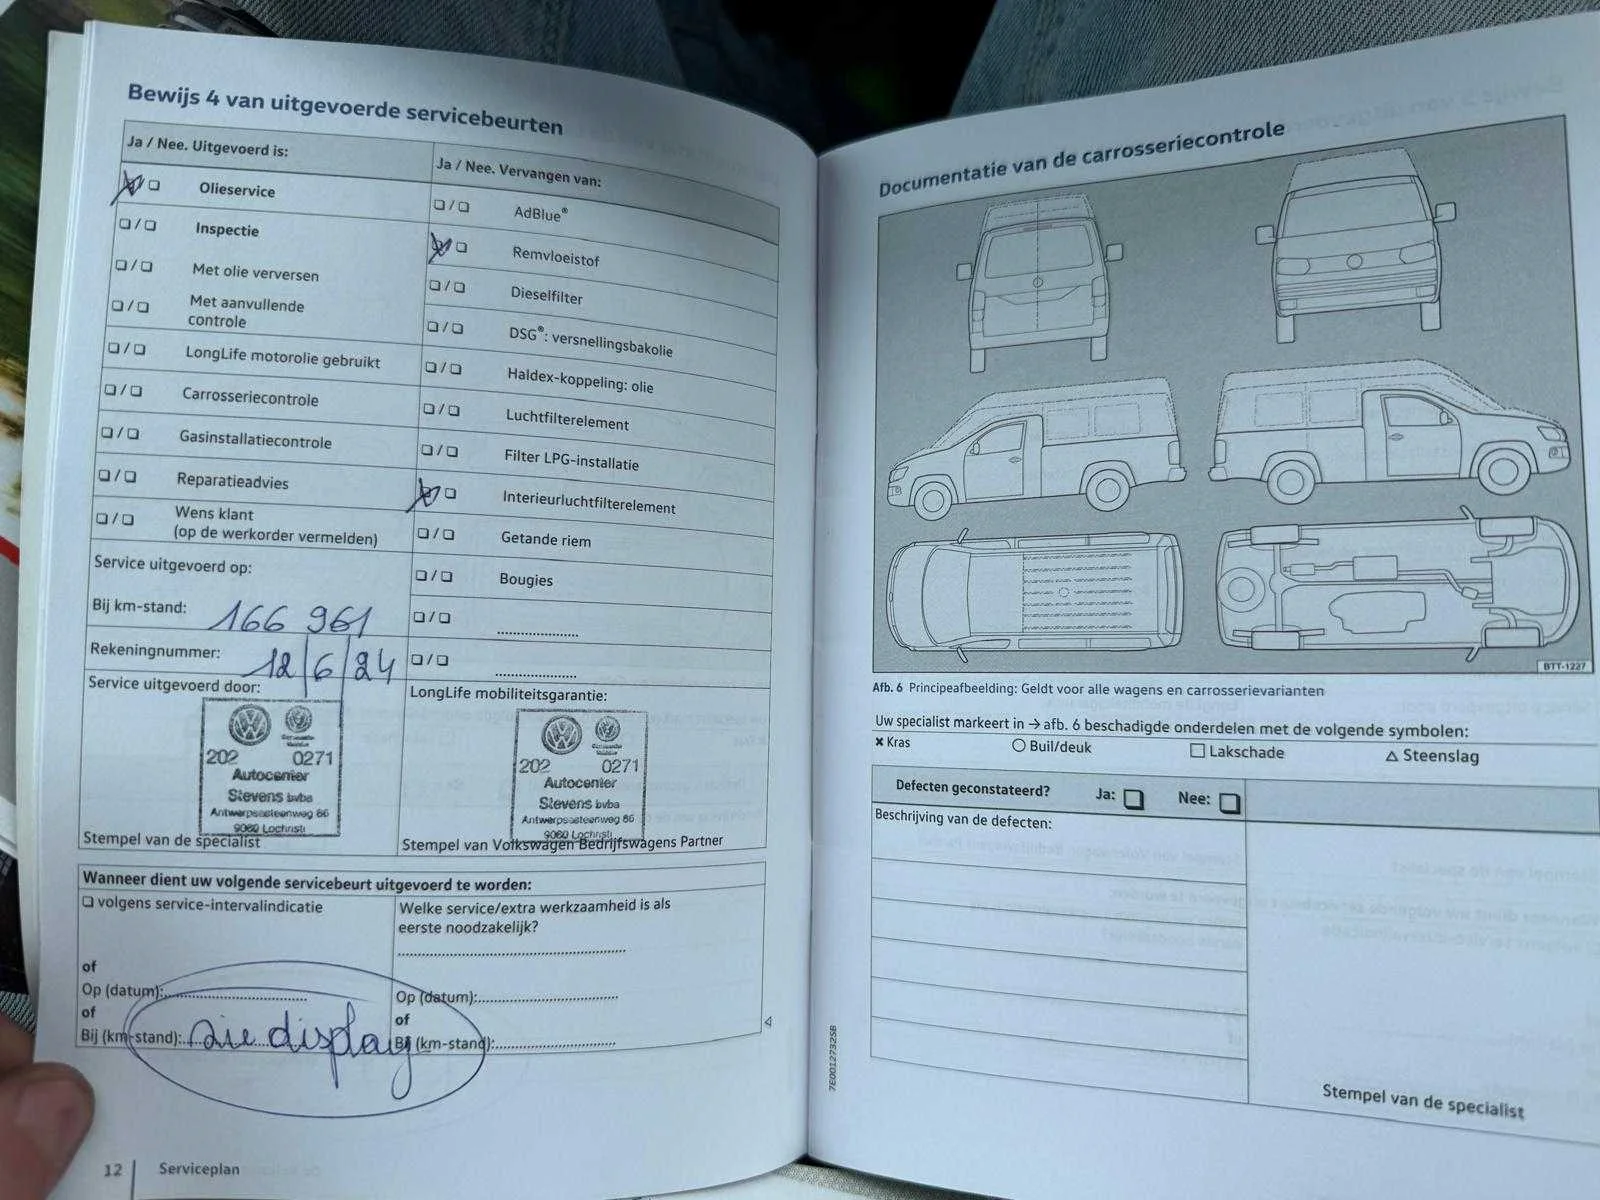 Bewijs 4 van uitgevoerde servicebeurten
Ja / Nee. Uitgevoerd is:
Olieservice
Inspectie
Met olie verversen
Met aanvullende
controle
LongLife motorolie gebruikt
Carrosseriecontrole
Gasinstallatiecontrole
Reparatieadvies
Wens klant
(op de werkorder vermelden)
Ja / Nee. Vervangen van:
AdBlue®
Remvloeistof
Dieselfilter
DSG®: versnellingsbakolie
Haldex-koppeling: olie
Luchtfilterelement
Filter LPG-installatie
Interieurluchtfilterelement
Getande riem
Bougies
Service uitgevoerd op:
Bij km-stand: 166 961
Rekeningnummer: 12/6/24
Service uitgevoerd door:
202 0271
Autocenter
Stevens bvba
Antwerpsesteenweg 86
9080 Lochristi
Stempel van de specialist
LongLife mobiliteitsgarantie:
202 0271
Autocenter
Stevens bvba
Antwerpsesteenweg 86
9080 Lochristi
Stempel van Volkswagen Bedrijfswagens Partner
Wanneer dient uw volgende servicebeurt uitgevoerd te worden:
volgens service-intervalindicatie
of
Op (datum):
of
Bij (km-stand): zie display
Welke service/extra werkzaamheid is als
eerste noodzakelijk?
Op (datum):
of
Bij (km-stand):
12 Serviceplan
Documentatie van de carrosseriecontrole
BTT-1227
Afb. 6 Principeafbeelding: Geldt voor alle wagens en carrosserievarianten
Uw specialist markeert in → afb. 6 beschadigde onderdelen met de volgende symbolen:
× Kras ○ Buil/deuk □ Lakschade △ Steenslag
Defecten geconstateerd? Ja: Nee:
Beschrijving van de defecten:
Stempel van de specialist
7E0012732SB